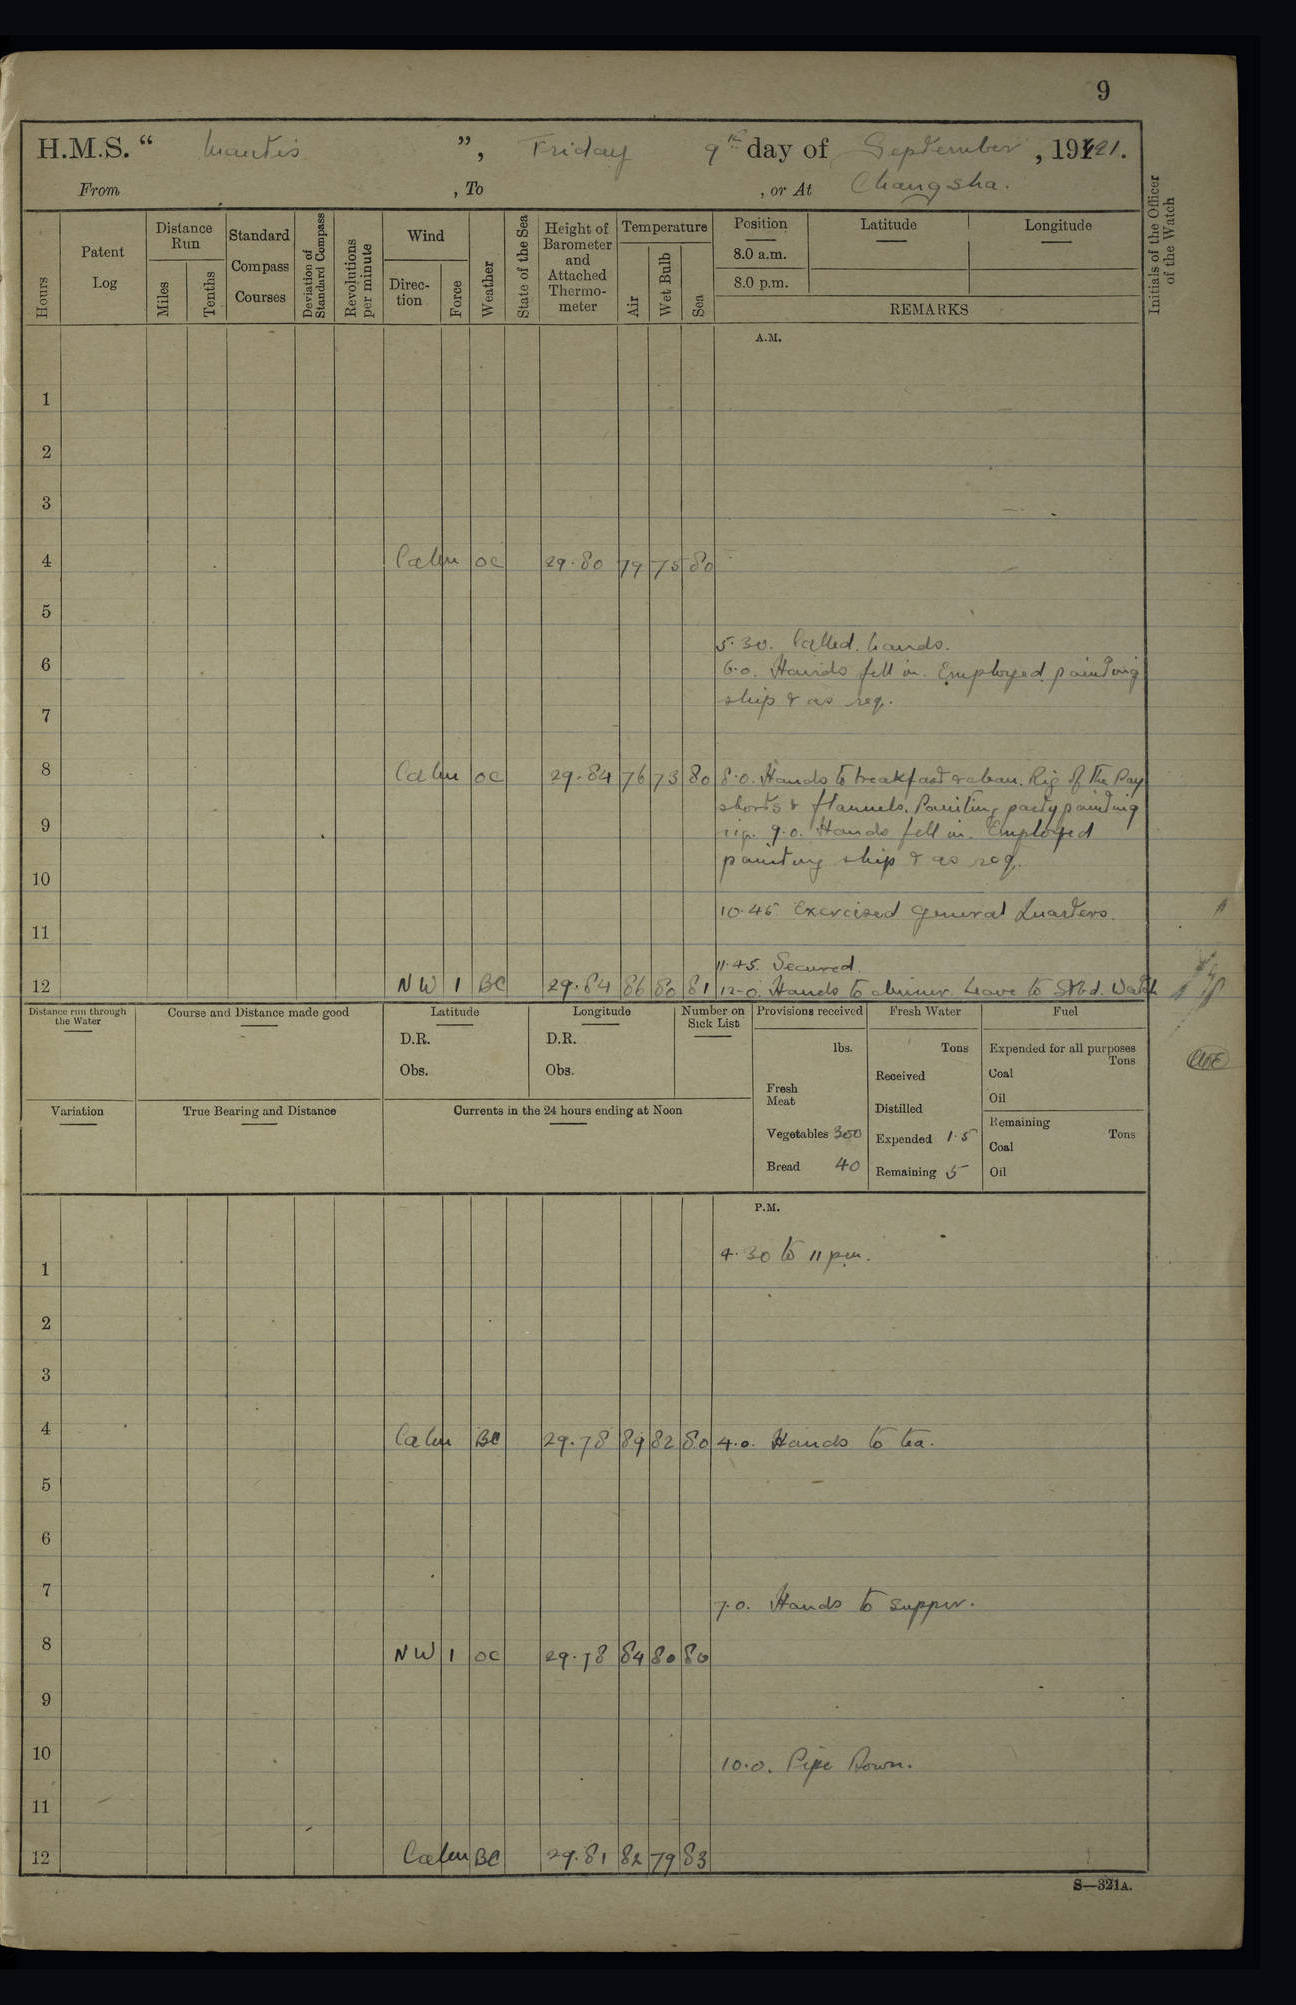 9
H.M.S. “ Mantis ”, Friday 9th day of September, 1921.
From , To , or At Changsha.
Hours
Patent Log
Distance Run
Miles
Tenths
Standard Compass Courses
Deviation of Standard Compass
Revolutions per minute
Wind
Direction
Force
Weather
State of the Sea
Height of Barometer and Attached Thermometer
Temperature
Air
Wet Bulb
Sea
Position
8.0 a.m.
8.0 p.m.
Latitude
Longitude
REMARKS
Initials of the Officer of the Watch
A.M.
1
2
3
4 Calm oc 29.80 79 75 80
5
5.30. Called hands.
6 6.0. Hands fell in. Employed painting
ship & as req.
7
8 Calm oc 29.84 76 73 80 8.0. Hands to breakfast & clean. Rig of the Day
shorts & flannels. Painting party painting
9 rig. 9.0. Hands fell in. Employed
painting ship & as req.
10
10.45 Exercised general Quarters.
11
11.45. Secured.
12 NW 1 BC 29.84 86 80 81 12.0. Hands to dinner. Leave to Stbd. Watch
Distance run through the Water
Course and Distance made good
Latitude
D.R.
Obs.
Longitude
D.R.
Obs.
Number on Sick List
Provisions received
lbs.
Fresh Meat
Vegetables 300
Bread 40
Fresh Water
Tons
Received
Distilled
Expended 1.5
Remaining 5
Fuel
Expended for all purposes
Tons
Coal
Oil
Remaining
Tons
Coal
Oil
Variation
True Bearing and Distance
Currents in the 24 hours ending at Noon
P.M.
4.30 to 11 pm.
1
2
3
4 Calm BC 29.78 89 82 80 4.0. Hands to tea.
5
6
7 7.0. Hands to supper.
8 NW 1 oc 29.78 84 80 80
9
10 10.0. Pipe Down.
11
12 Calm BC 29.81 82 79 83
S—321A.